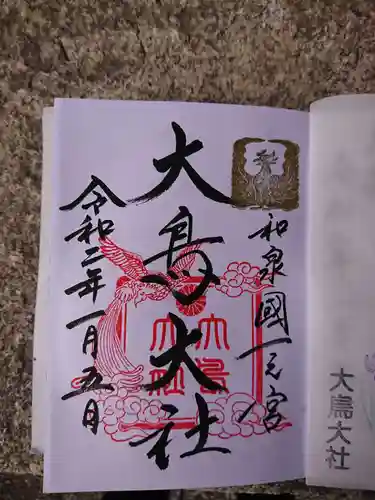 和泉國一之宮
大鳥大社
令和二年一月五日
大鳥
大社
大鳥大社